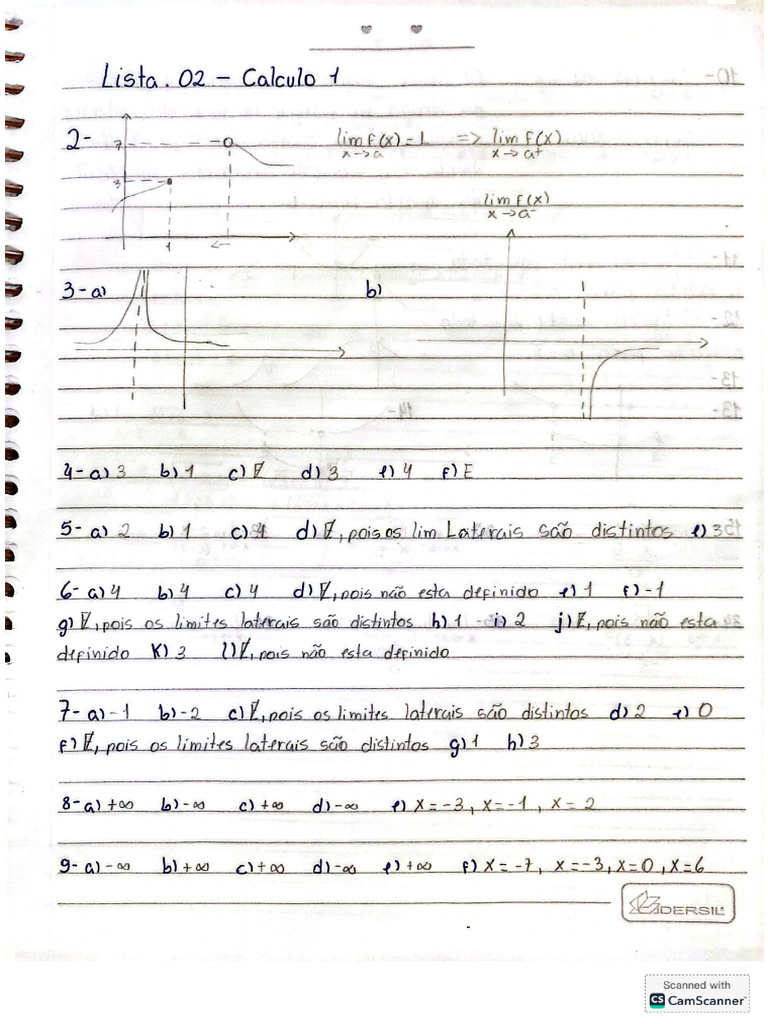 Lista. 02 - Calculo 1
2-
7
3
1
lim f(x) = L => lim f(x)
x->a x->a+
lim f(x)
x->a-
3-a) b)
4- a) 3 b) 1 c) ∄ d) 3 e) 4 f) E
5- a) 2 b) 1 c) 4 d) ∄, pois os lim Laterais são distintos e) 3
6- a) 4 b) 4 c) 4 d) ∄, pois não esta definido e) 1 f) -1
g) ∄, pois os limites laterais são distintos h) 1 - i) 2 j) ∄, pois não esta
definido K) 3 l) ∄, pois não esta definido
7- a) -1 b) -2 c) ∄, pois os limites laterais são distintos d) 2 e) 0
f) ∄, pois os limites laterais são distintos g) 1 h) 3
8- a) +∞ b) -∞ c) +∞ d) -∞ e) x = -3, x = -1, x = 2
9- a) -∞ b) +∞ c) +∞ d) -∞ e) +∞ f) x = -7, x = -3, x = 0, x = 6
IDERSIL
Scanned with
CS CamScanner